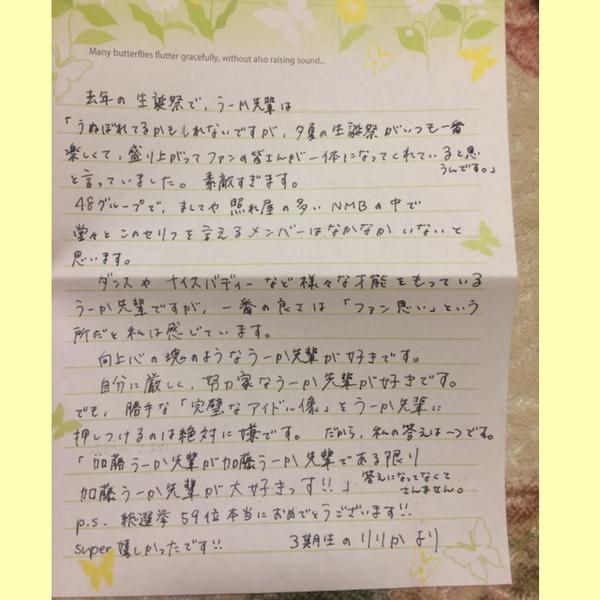 Many butterflies flutter gracefully, without also raising sound...
去年の生誕祭で、うーか先輩は
「うぬぼれてるかもしれないですが、夕夏の生誕祭がいつも一番
楽しくて、盛り上がってファンの皆さんが一体になってくれていると思
うんです。」
と言っていました。素敵すぎます。
48グループで、ましてや照れ屋の多いNMBの中で
堂々とこのセリフを言えるメンバーはなかなかいないと
思います。
ダンスやナイスバディーなど様々な才能をもっている
うーか先輩ですが、一番の良さは「ファン思い」という
所だと私は感じています。
向上心の塊のようなうーか先輩が好きです。
自分に厳しく、努力家なうーか先輩が好きです。
でも、勝手な「完璧なアイドル像」とうーか先輩に
押しつけるのは絶対に嫌です。だから、私の答えは一つです。
「加藤うーか先輩が加藤うーか先輩である限り
加藤うーか先輩が大好きっす!!」答えになってなくて
さんません。
p.s. 総選挙59位本当におめでとうございます!!
super嬉しかったです!! 3期生のりりかより